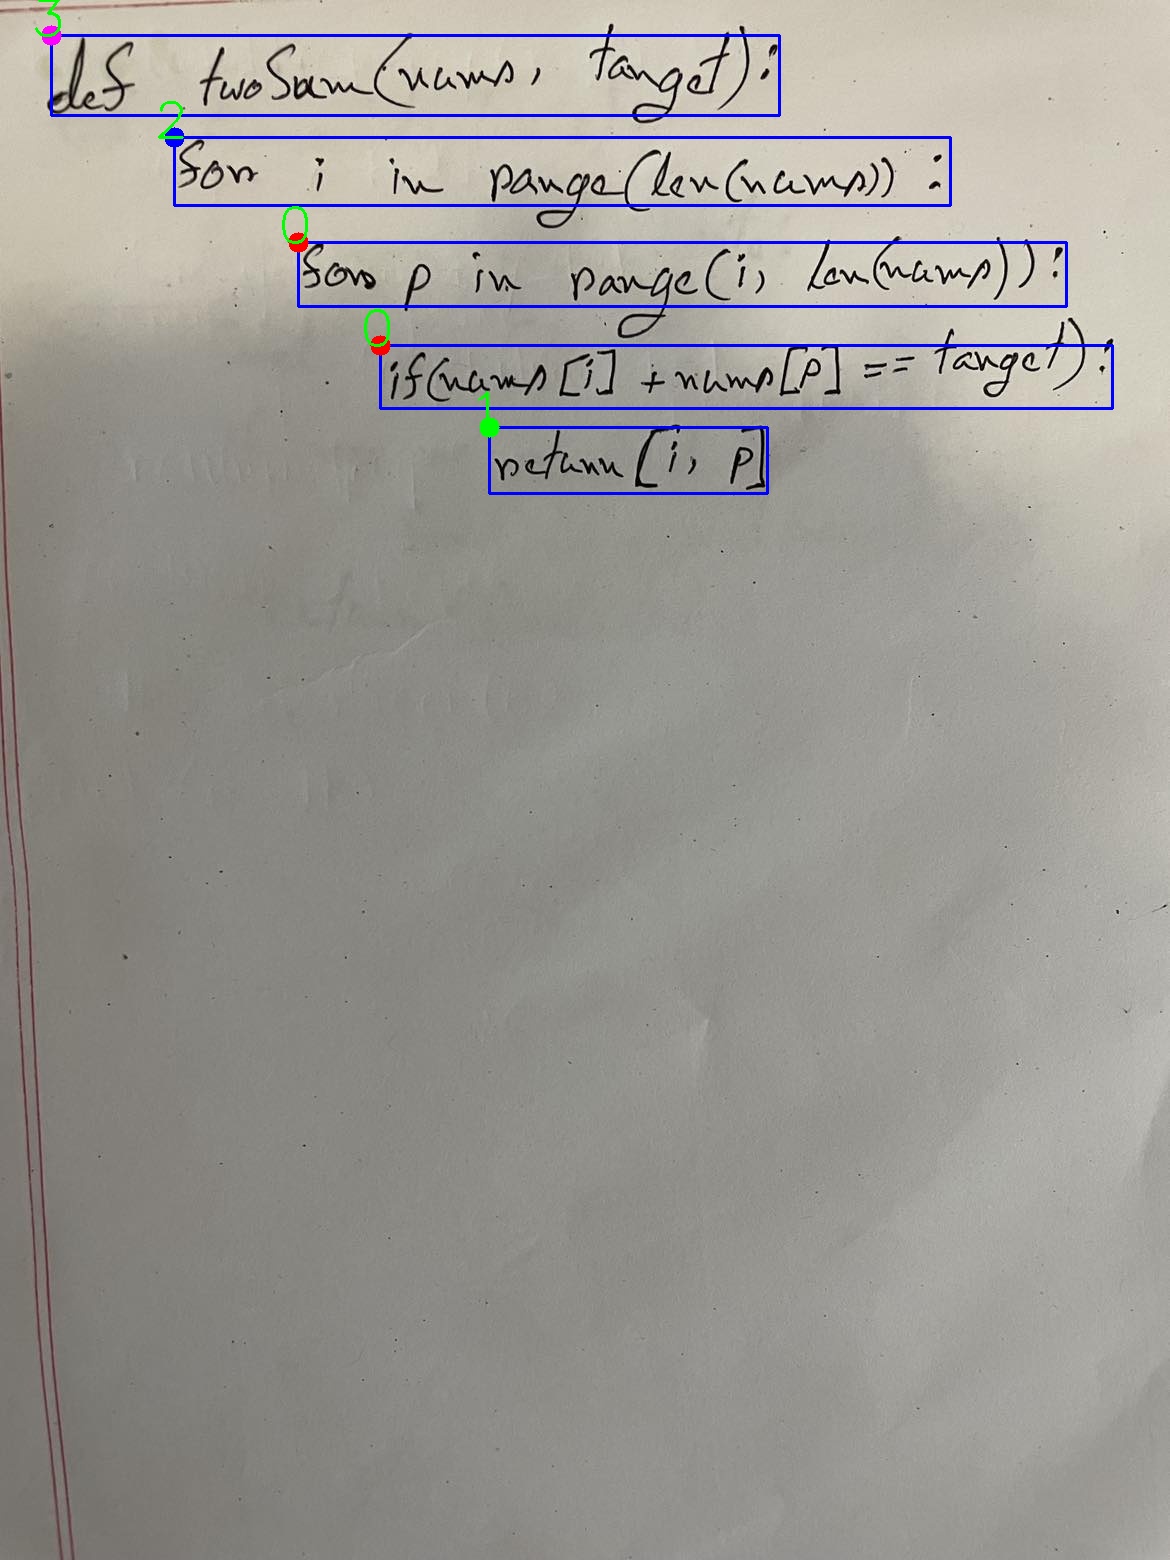 3
def twoSum(nums, target):
2
for i in range(len(nums)):
0
for p in range(i, len(nums)):
0
if(nums[i] + nums[p] == target):
1
return [i, p]